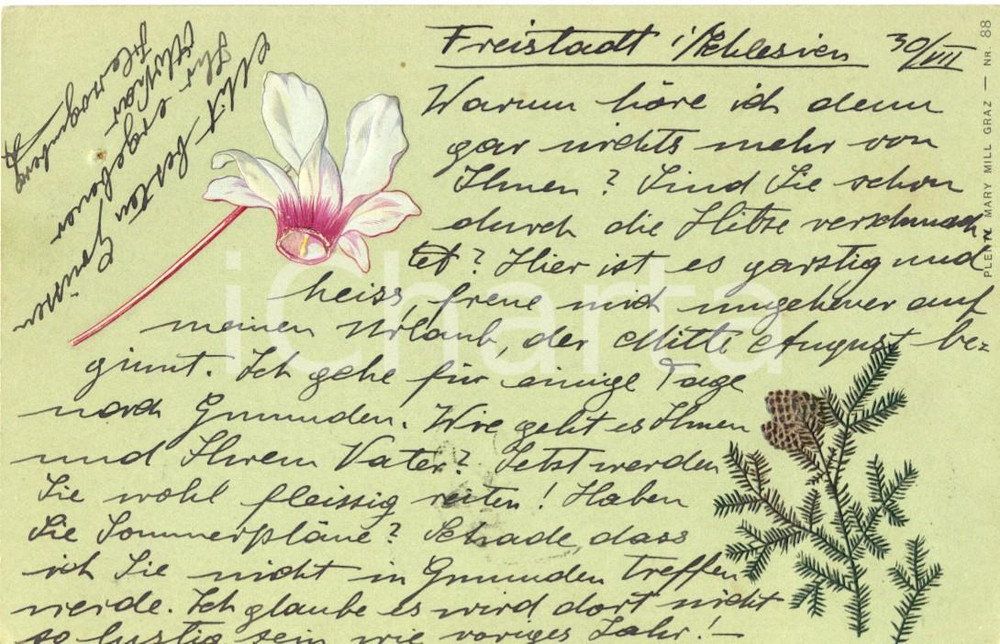 Freistadt i/Schlesien 30/VII
Warum höre ich denn
gar nichts mehr von
Ihnen? Sind Sie schon
durch die Hitze verschmach
tet? Hier ist es garstig und
heiss, freue mich ungeheuer auf
meinen Urlaub, der Mitte August be=
ginnt. Ich gehe für einige Tage
nach Gmunden. Wie geht es Ihnen
und Ihrem Vater? Jetzt werden
Sie wohl fleissig reiten! Haben
Sie Sommerpläne? Schade, dass
ich Sie nicht in Gmunden treffen
werde. Ich glaube es wird dort nicht
so lustig sein wie voriges Jahr!—
Mit besten Grüssen
Ihr ergebener
PLENTL MARY MILL GRAZ — NR. 88
iCharta